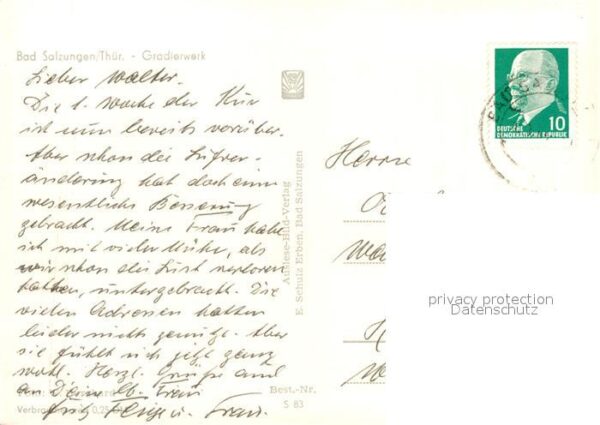 Bad Salzungen/Thür. - Gradierwerk
Lieber Walter.
Die 1. Woche der Kur
ist nun bereits vorüber.
Aber schon die Luftver-
änderung hat doch eine
wesentliche Besserung
gebracht. Meine Frau habe
ich mit vieler Mühe, als
wir schon die Lust verloren
hatten, untergebracht. Die
vielen Adressen hatten
leider nichts genutzt. Aber
sie fühlt sich jetzt ganz
wohl. Herzl. Grüße auch
an Deine lb. Frau
Fritz u. Frau.
Verbr 0,25
Auslese-Bild-Verlag
E. Schulz Erben, Bad Salzungen
Best.-Nr.
S 83
Herrn
BAD SA
10
DEUTSCHE
DEMOKRATISCHE REPUBLIK
privacy protection
Datenschutz